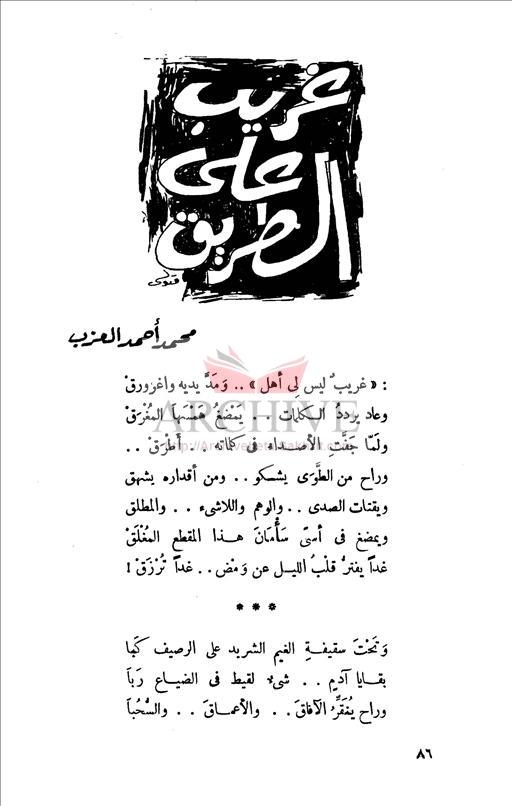 غريب
على
الطريق
محمد أحمد العزب
: « غريبٌ ليس لِي أهل » .. وَمَدَّ يديه واغرورقْ
وعاد يرددُ الكلمات .. يَمْضَغُ هَمْسَها المُغْرَقْ
ARCHIVE
ولَمّا جَفَّتِ الأصداء فى كلماته .. أَطْرَقْ ..
وراح من الطَّوَى يشكو .. ومن أقداره يشهق
ويقتات الصدى .. والوهم واللاشىء .. والمطلق
ويمضغ فى أسىً سَأْمَانَ هذا المقطع المُغْلَقْ
غداً يفترُّ قلْبُ الليل عن وَمْض .. غداً تُرْزَقْ !
* * *
وَتَحْتَ سقيفةِ الغيم الشريد على الرصيف كَبَا
بقايا آدمٍ .. شىءٌ لقيط فى الضياع رَبَا
وراح يُنَقِّرُ الآفاقَ .. والأعماقَ .. والسُّحُبا
٨٦